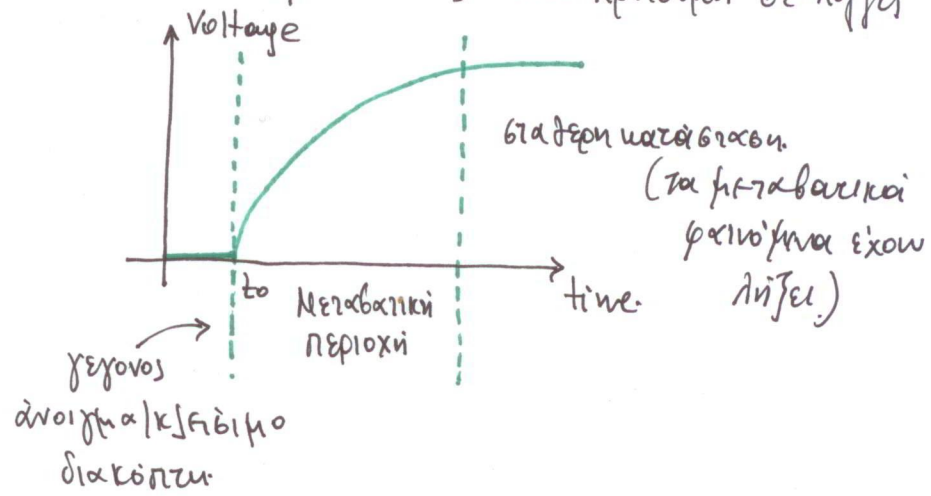 σε
Voltage
σταθερη κατάσταση.
(τα μεταβατικά
φαινόμενα έχουν
λήξει.)
to
Μεταβατική
περιοχή
time.
γεγονος
άνοιγμα/κλείσιμο
διακόπτη.